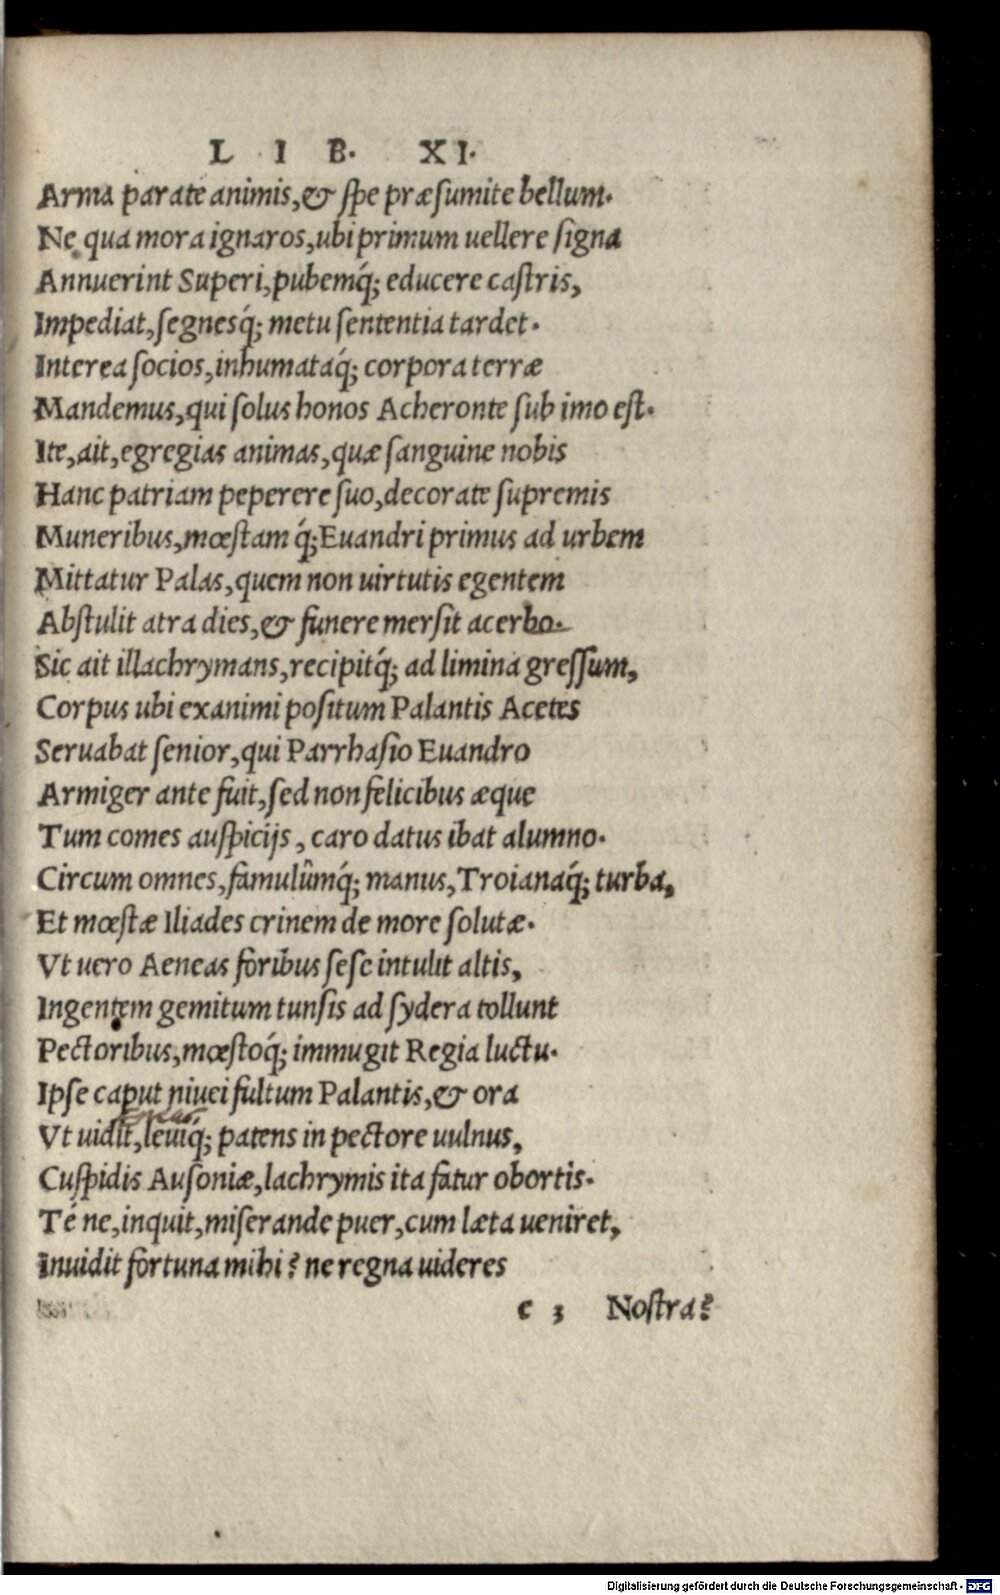 LIB. XI.
Arma parate animis, & spe præsumite bellum.
Ne qua mora ignaros, ubi primum uellere signa
Annuerint Superi, pubemq́; educere castris,
Impediat, segnesq́; metu sententia tardet.
Interea socios, inhumataq́; corpora terræ
Mandemus, qui solus honos Acheronte sub imo est.
Ite, ait, egregias animas, quæ sanguine nobis
Hanc patriam peperere suo, decorate supremis
Muneribus, mœstam q́; Euandri primus ad urbem
Mittatur Palas, quem non uirtutis egentem
Abstulit atra dies, & funere mersit acerbo.
Sic ait illachrymans, recipitq́; ad limina gressum,
Corpus ubi exanimi positum Palantis Acetes
Seruabat senior, qui Parrhasio Euandro
Armiger ante fuit, sed non felicibus æque
Tum comes auspicijs, caro datus ibat alumno.
Circum omnes, famulûmq́; manus, Troianaq́; turba,
Et mœstæ Iliades crinem de more solutæ.
Vt uero Aeneas foribus sese intulit altis,
Ingentem gemitum tunsis ad sydera tollunt
Pectoribus, mœstoq́; immugit Regia luctu.
Ipse caput niuei fultum Palantis, & ora
Vt uidit, leuiq́; patens in pectore uulnus,
Cuspidis Ausoniæ, lachrymis ita fatur obortis.
Té ne, inquit, miserande puer, cum læta ueniret,
Inuidit fortuna mihi? ne regna uideres
c 3 Nostra?
Digitalisierung gefördert durch die Deutsche Forschungsgemeinschaft - DFG